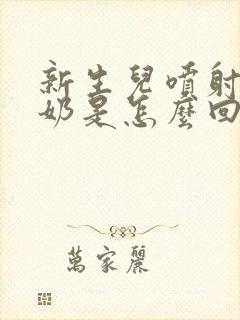 新生兒噴射
奶是怎麼回
萬家麗